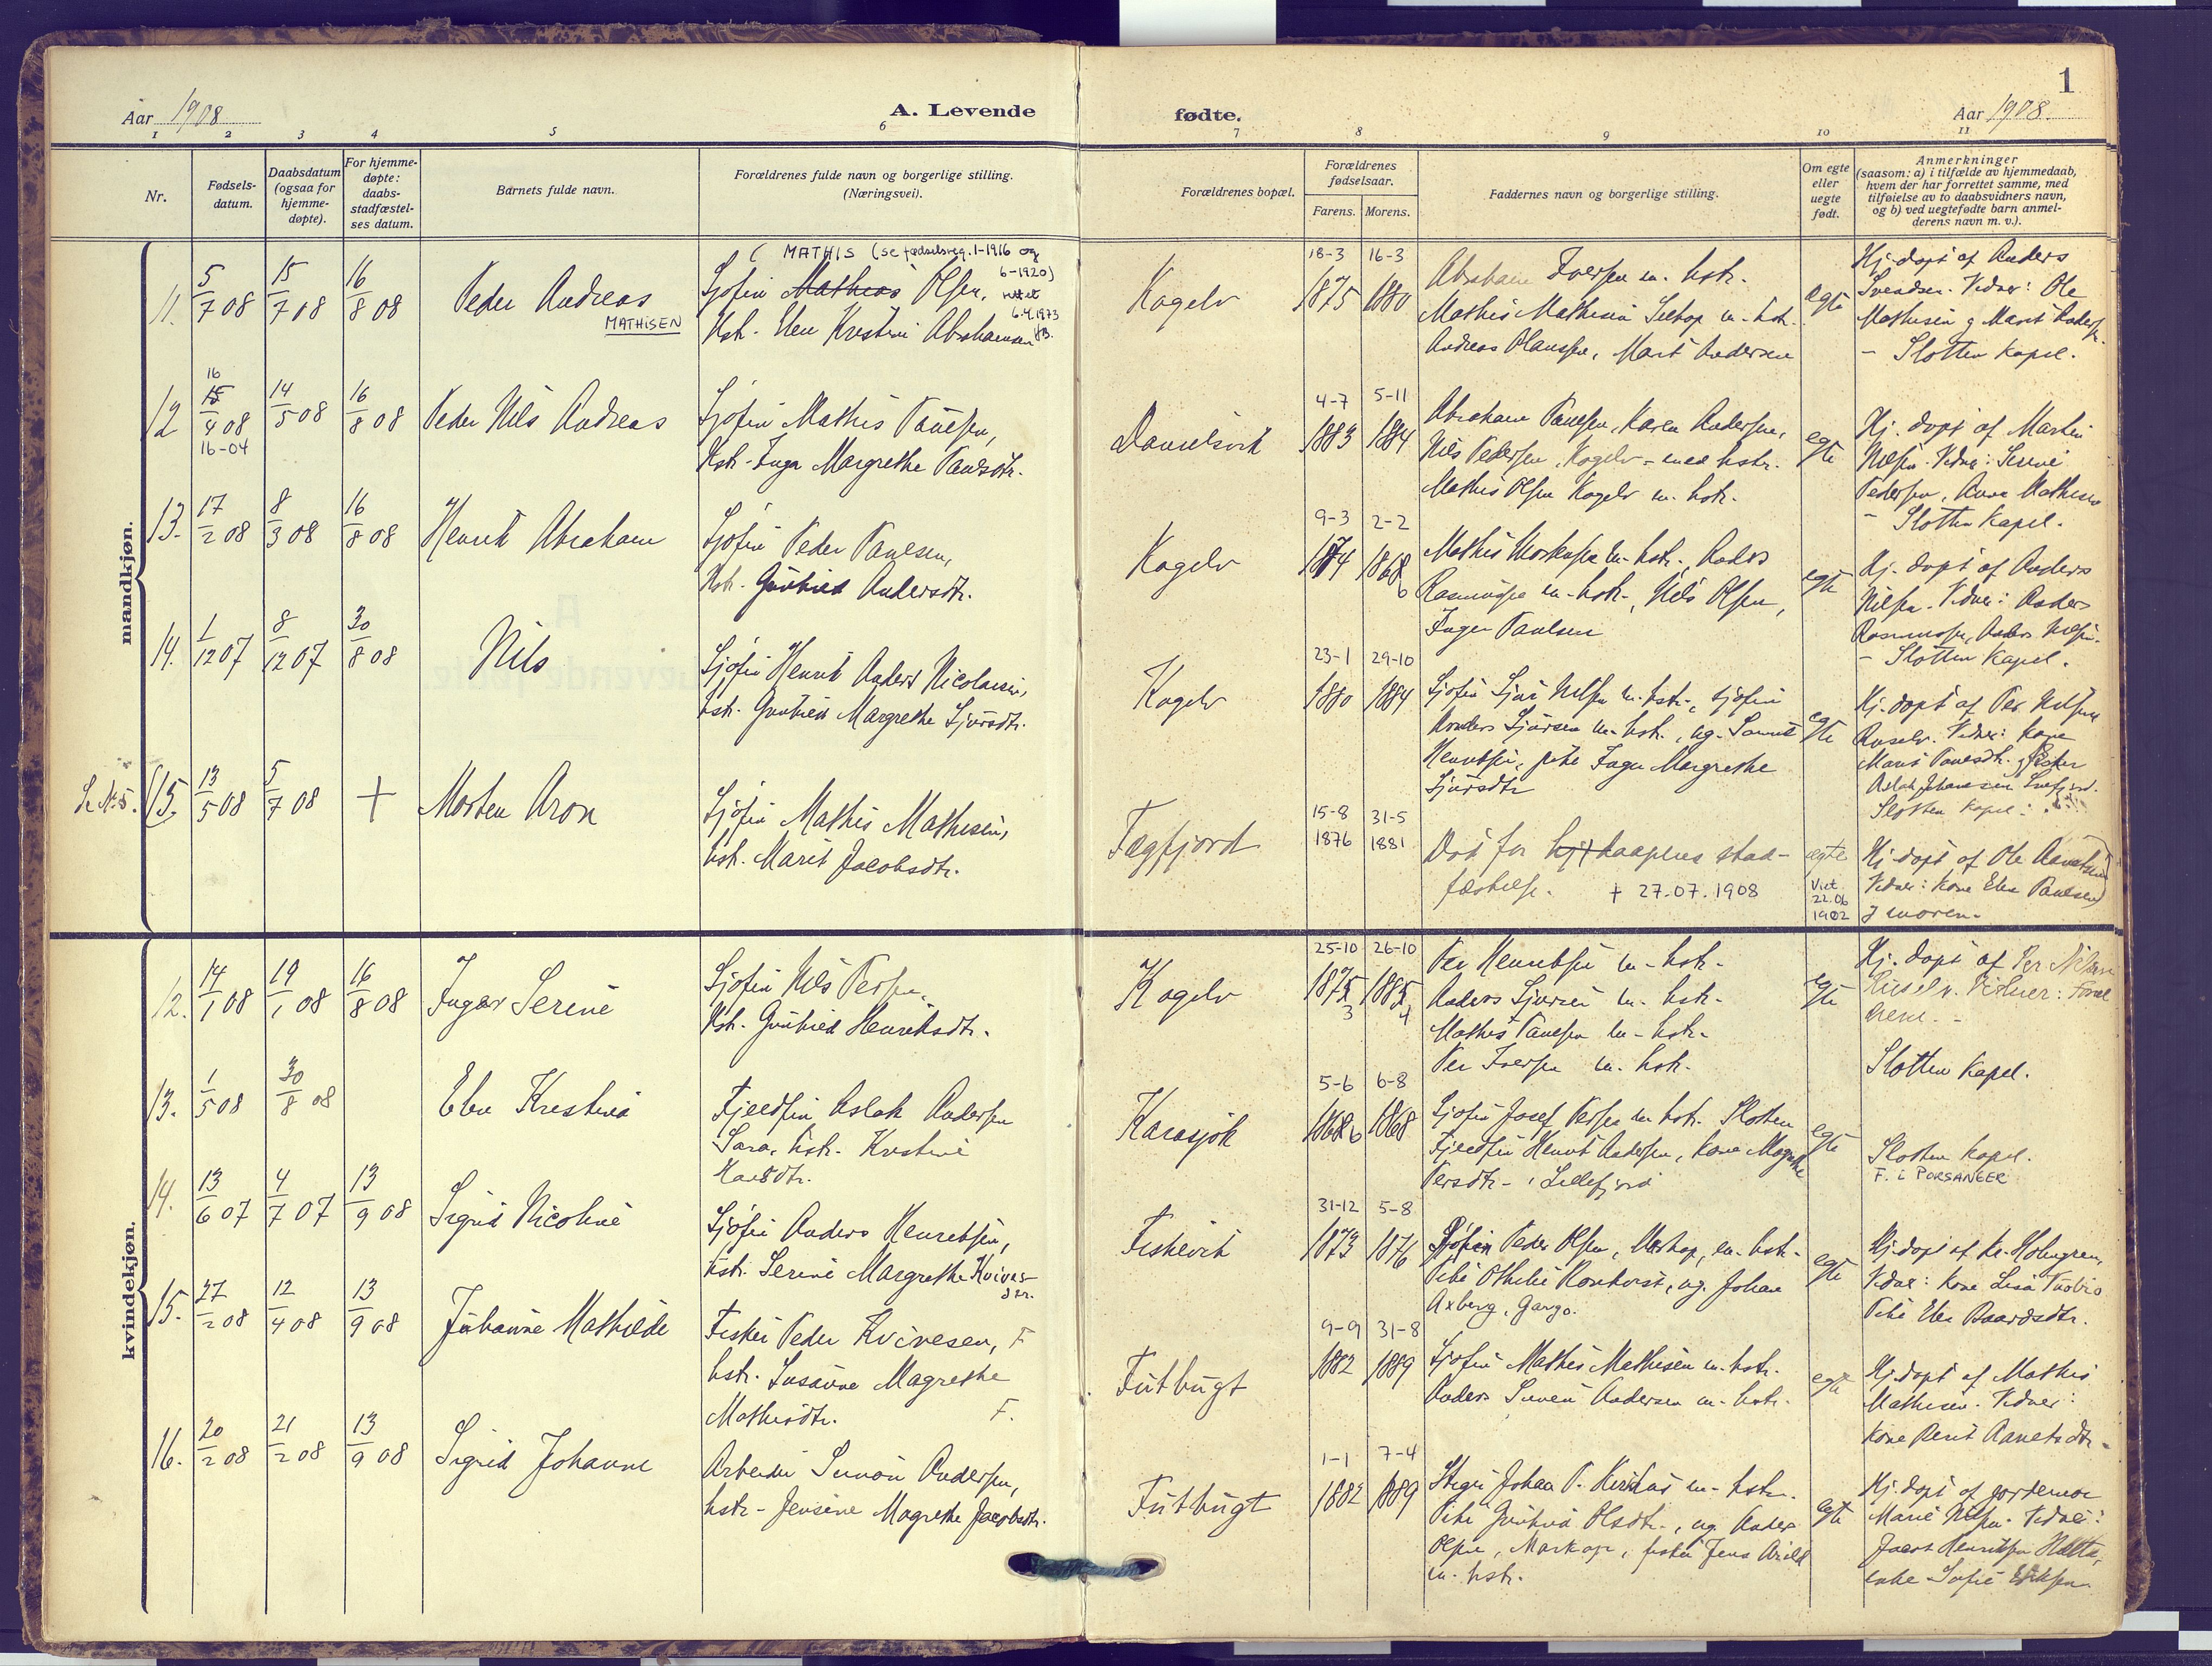 Aar 1908
A. Levende
fødte.
Aar 1908.
1
1 2 3 4 5 6 7 8 9 10 11
Nr.
Fødsels-
datum.
Daabsdatum
(ogsaa for
hjemme-
døpte).
For hjemme-
døpte:
daabs-
stadfæstel-
ses datum.
Barnets fulde navn.
Forældrenes fulde navn og borgerlige stilling.
(Næringsvei).
Forældrenes bopæl.
Forældrenes
fødselsaar.
Farens. Morens.
Faddernes navn og borgerlige stilling.
Om egte
eller
uegte
født.
Anmerkninger
(saasom: a) i tilfælde av hjemmedaab,
hvem der har forrettet samme, med
tilføielse av to daabsvidners navn,
og b) ved uegtefødte barn anmel-
derens navn m. v.).
mandkjøn.
11. 5/7 08 15/7 08 16/8 08
Peder Andreas
MATHISEN
( MATHIS (se fødselsreg. 1-1916 og
6-1920)
Sjøfin Mathias Olsen, rettet
6.4.1973
Hstr. Elen Kristine Abrahamsen
Kogelv
18-3 16-3
1875 1880
Abraham Iversen m. hstr.
Mathis Mathisen m. hstr.
Andreas Olaussen, Marit Andersen
egte
Hj. døpt af Anders
Svendsen. Vidner: Ole
Mathisen g Marit Anders
- Slotten kapel.
12 16 15/4 08 16-04 14/5 08 16/8 08
Peder Nils Andreas
Sjøfin Mathis Paulsen,
Hstr. Inga Margrethe Paulsdtr.
Danielsvik
4-7 5-11
1883 1884
Abraham Paulsen, Karen Andersen,
Nils Pedersen, Kogelv - med hstr.
Mathis Olsen Kogelv m. hstr.
egte
Hj. døpt af Martin
Nilsen. Vidner: Serine
Pedersen, Anna Mathisen
- Slotten kapel.
13. 17/2 08 8/3 08 16/8 08
Henrik Abraham
Sjøfin Peder Paulsen,
Hstr. Gunhild Andersdtr.
Kogelv
9-3 2-2
1874 1868
6
Mathis m. hstr., Anders
Rasmussen m. hstr., Nils Olsen,
Inger Paulsen
egte
Hj. døpt af Anders
Nilsen. Vidner: Anders
Rasmussen, Anders Nilsen.
- Slotten kapel.
14. 1/12 07 8/12 07 30/8 08
Nils
Sjøfin Henrik Anders Nicolaisen,
hstr. Gunhild Margrethe Sjursdtr.
Kogelv
23-1 29-10
1880 1884
Sjøfin Sjur Nilsen m. hstr., sjøfin
Anders Sjursen m. hstr., ug. Samuel
Henriksen, pike Inga Margrethe
Sjursdtr
egte
Hj. døpt af Per Nilsen
Vidner: kone
Marit Paulsdtr. g
Aslak Johansen
Slotten kapel.
Se Nr. 5. 15. 13/5 08 5/7 08 +
Morten Aron
Sjøfin Mathis Mathisen,
hstr. Marit Jacobsdtr.
Fægfjord
15-8 31-5
1876 1881
Død før daapens stad-
fæstelse. † 27.07.1908
egte
Viet
22.06
1902
Hj. døpt af Ole
Vidner: kone Elen Paulsen
g moren.
kvindekjøn.
12. 14/1 08 19/1 08 16/8 08
Inger Serine
Sjøfin Nils Persen,
Hstr. Gunhild Henriksdtr.
Kogelv
25-10 26-10
1875 1885
3 4
Per Henriksen m. hstr.
Anders Sjursen m. hstr.
Mathis Paulsen m. hstr.
Per Iversen m. hstr.
egte
Hj. døpt af Per Nilsen
Vidner: Foræl
drene. -
Slotten kapel.
13. 1/5 08 30/8 08
Elen Kristine
Fjeldfin Aslak Andersen
Sara, hstr. Kristine
Karasjok
5-6 6-8
1868 6 1868
Sjøfin Josef Persen m. hstr. Slotten
Fjeldfin Henrik Andersen, kone Magrethe
Persdtr. i Lillefjord
egte
Slotten kapel.
F. i PORSANGER
14. 13/6 07 4/7 07 13/9 08
Sigrid Nicoline
Sjøfin Anders Henriksen,
hstr. Serine Margrethe Kvives-
dtr.
Fiskevik
31-12 5-8
1873 1876
Sjøfin Peder Olsen, m. hstr.
Pike Othelie ug. Johan
Axberg, Gargo.
egte
Hj. døpt af Kr. Holmgren,
Vidner: kone Lisa
Pike Elen Baardsdtr.
15. 27/2 08 12/4 08 13/9 08
Johanne Mathilde
Fisker Peder Kvivesen, F
hstr. Susanne Magrethe
Mathisdtr. F.
Futbugt
9-9 31-8
1882 1889
Sjøfin Mathis Mathisen m. hstr.
Anders Simon Andersen m. hstr.
egte
Hj. døpt af Mathis
Mathisen. Vidner:
kone Berit
16. 20/2 08 21/2 08 13/9 08
Sigrid Johanne
Arbeider Simon Andersen,
hstr. Jensine Magrethe Jacobsdtr.
Futbugt
1-1 7-4
1882 1889
Johan P. m. hstr.
Pike Gunhild Olsdtr., ug. Anders
Olsen, Markop, fisker Jens
m. hstr.
egte
Hj. døpt af gordemor
Marie Nilsen. Vidner:
Jacob Henriksen Hætta,
enke Sofie